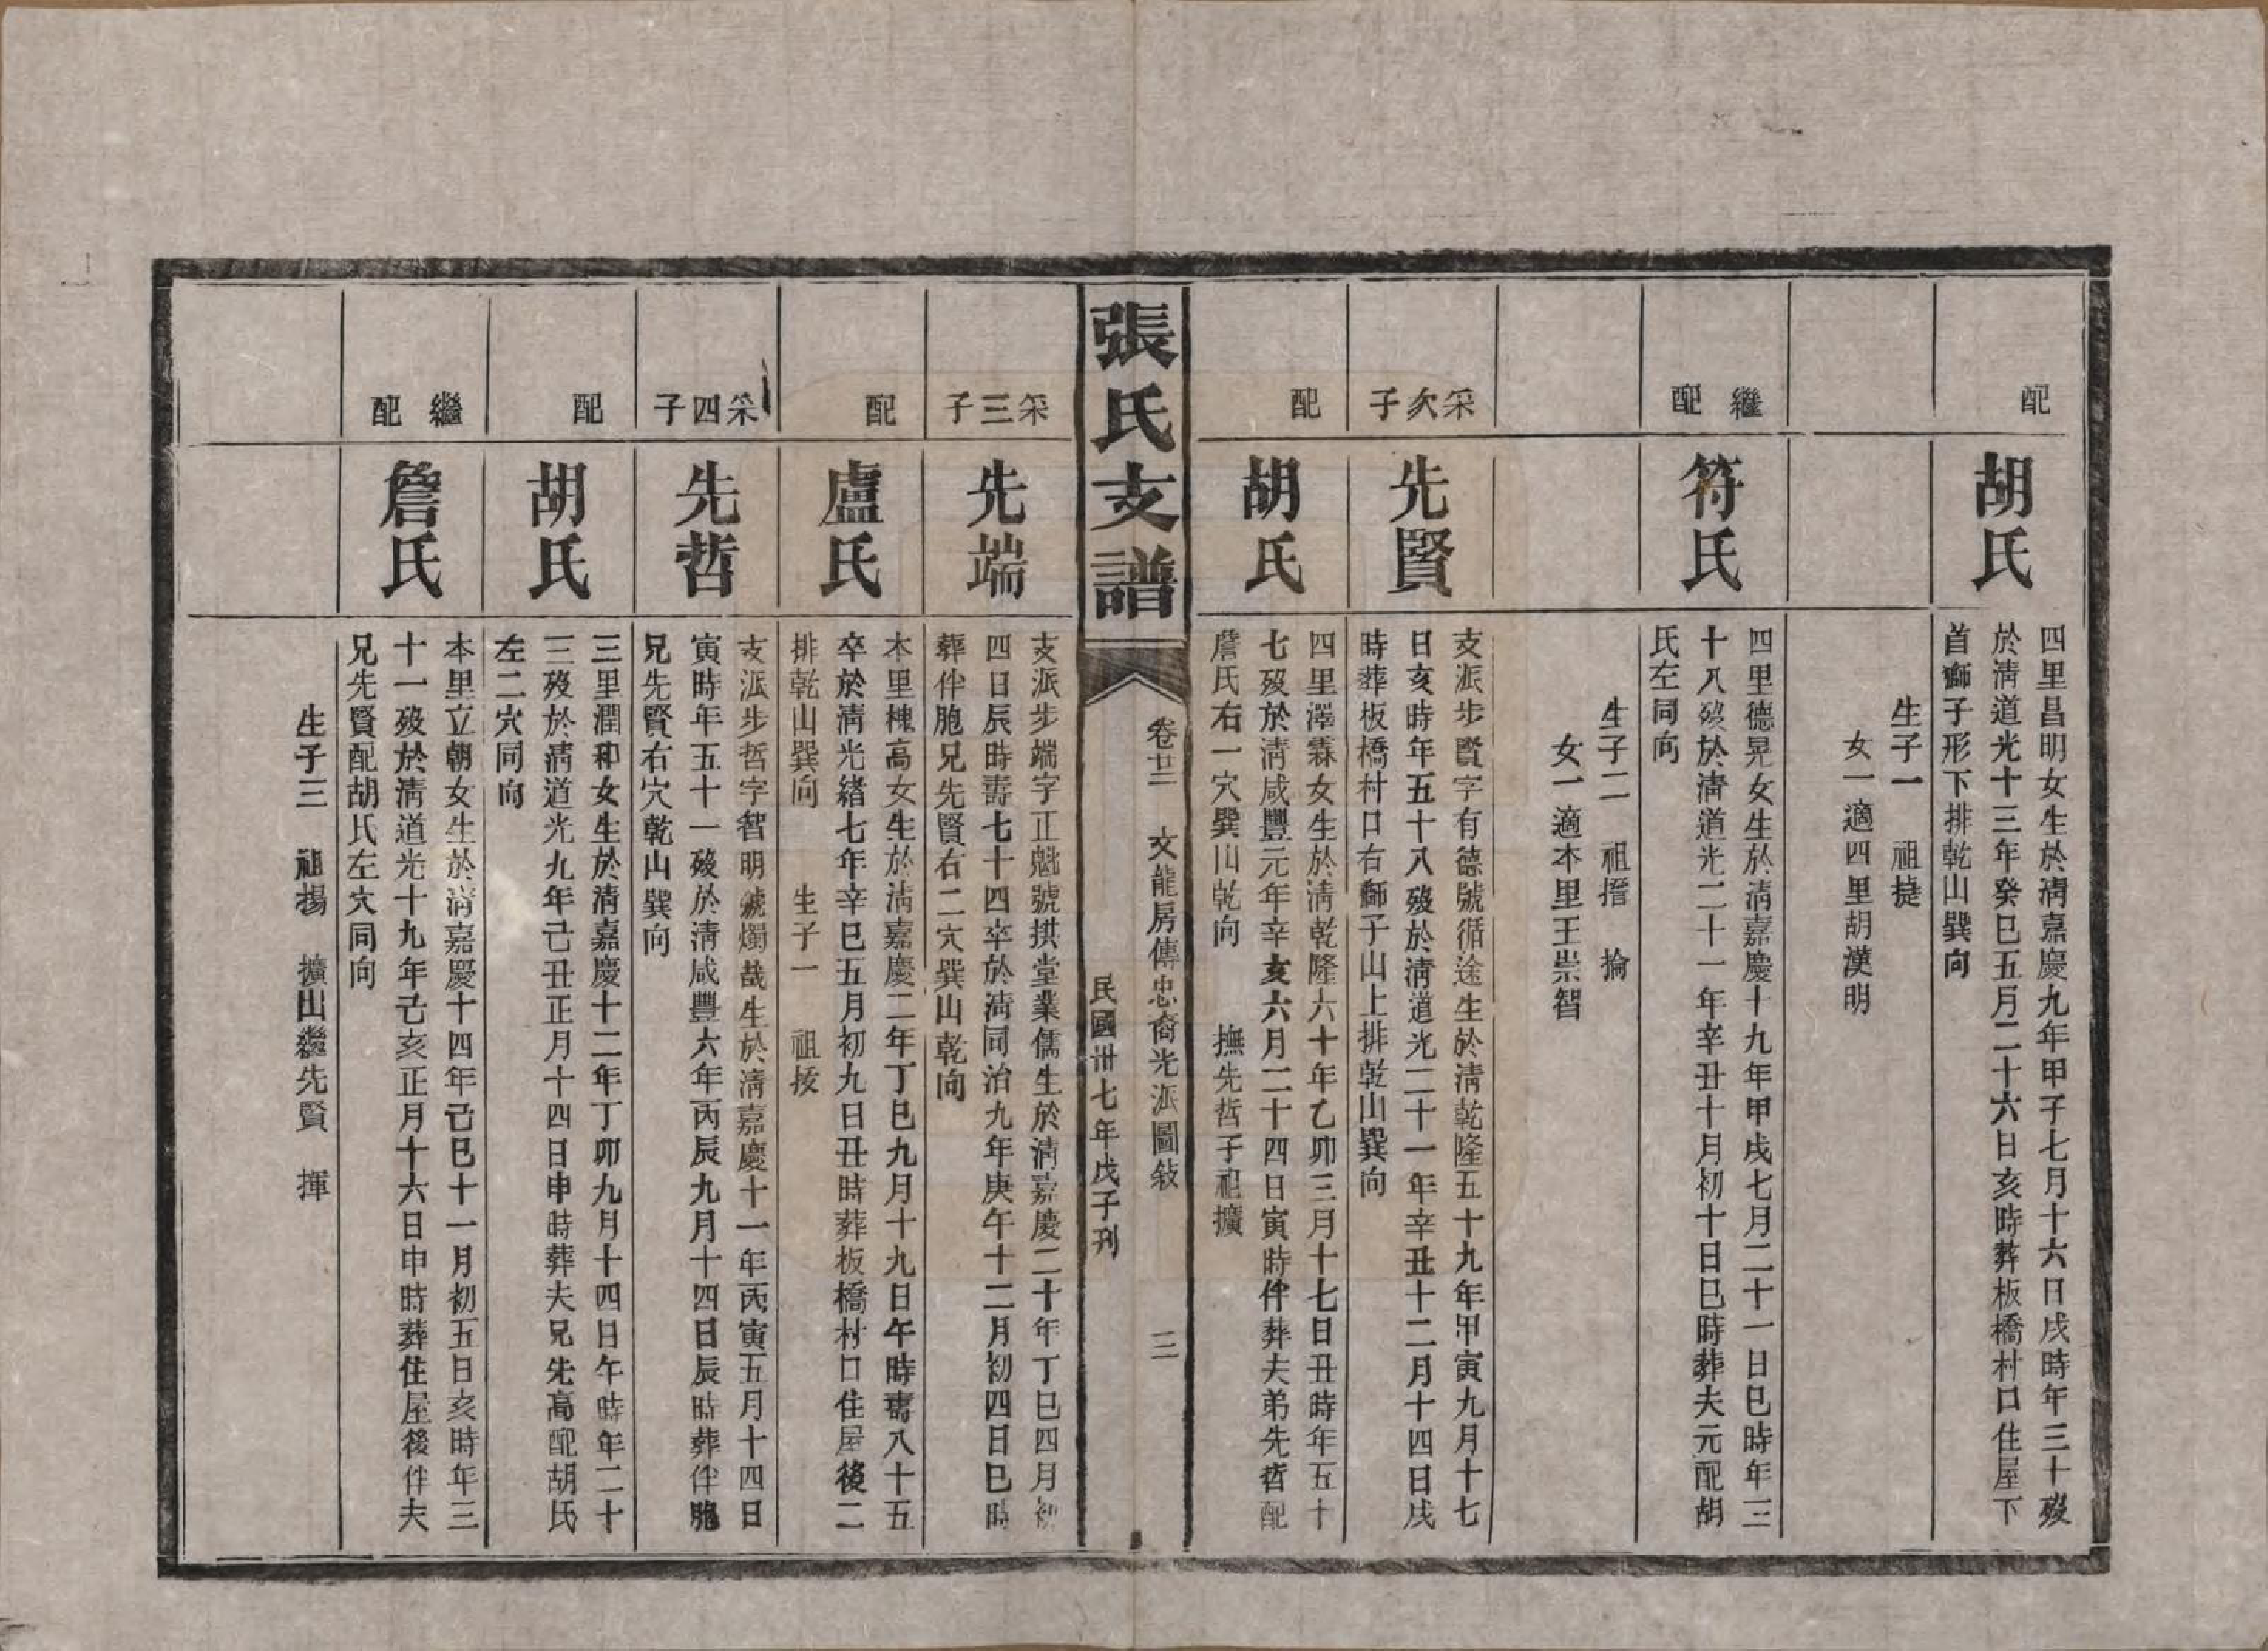 配
胡氏
四里昌明女生於清嘉慶九年甲子七月十六日戌時年三十歿
於清道光十三年癸巳五月二十六日亥時葬板橋村口住屋下
首獅子形下排乾山巽向
生子一　祖㨗
女一適四里胡漢明
繼配
符氏
四里德晃女生於清嘉慶十九年甲戌七月二十一日巳時年二
十八歿於清道光二十一年辛丑十月初十日巳時葬夫元配胡
氏左同向
生子二　祖搢　掄
女一適本里王崇智
采次子
先賢
支派步賢字有德號循途生於清乾隆五十九年甲寅九月十七
日亥時年五十八歿於清道光二十一年辛丑十二月十四日戌
時葬板橋村口右獅子山上排乾山巽向
配
胡氏
四里澤霖女生於清乾隆六十年乙卯三月十七日丑時年五十
七歿於清咸豐元年辛亥六月二十四日寅時伴葬夫弟先哲配
詹氏右一穴巽山乾向　撫先哲子祖擴
張氏支譜
卷廿二　文龍房傳忠裔光派圖敘　三
民國卅七年戊子刊
采三子
先端
支派步端字正魁號拱堂業儒生於清嘉慶二十年丁巳四月初
四日辰時壽七十四卒於清同治九年庚午十二月初四日巳時
葬伴胞兄先賢右二穴巽山乾向
配
盧氏
本里槐高女生於清嘉慶二年丁巳九月十九日午時壽八十五
卒於清光緒七年辛巳五月初九日丑時葬板橋村口住屋後二
排乾山巽向　生子一　祖授
采四子
先哲
支派步哲字智明號燭哉生於清嘉慶十一年丙寅五月十四日
寅時年五十一歿於清咸豐六年丙辰九月十四日辰時葬伴胞
兄先賢右穴乾山巽向
配
胡氏
三里潤和女生於清嘉慶十二年丁卯九月十四日午時年二十
三歿於清道光九年己丑正月十四日申時葬夫兄先高配胡氏
左二穴同向
繼配
詹氏
本里立朝女生於清嘉慶十四年己巳十一月初五日亥時年三
十一歿於清道光十九年己亥正月十六日申時葬住屋後伴夫
兄先賢配胡氏左穴同向
生子三　祖揚　擴出繼先賢　揮